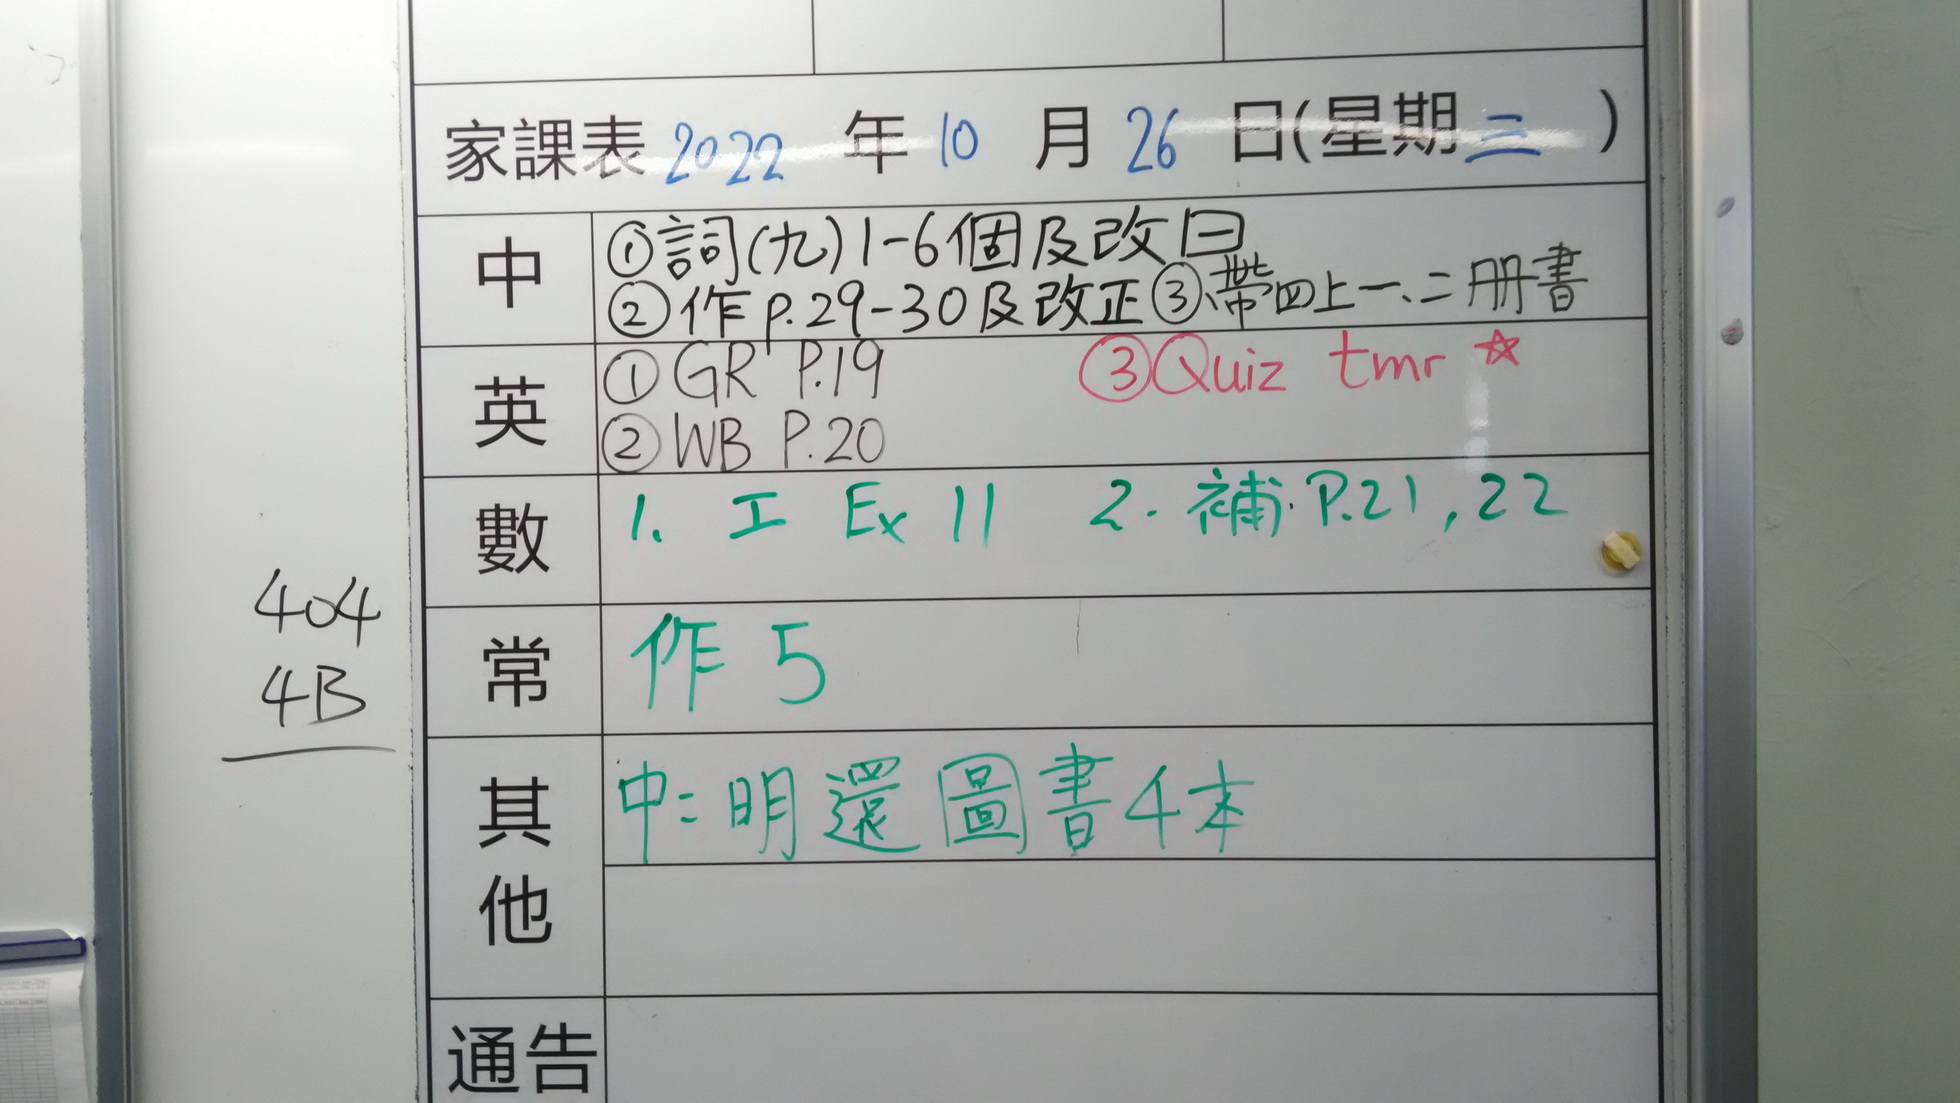 家課表 2022 年 10 月 26 日(星期三)
中
①詞(九) 1-6個及改
②作 p.29-30及改正 ③帶四上一、二冊書
英
① GR P.19 ③Quiz tmr ☆
② WB P.20
數
1. 工 Ex 11 2. 補. P.21, 22
404
4B
常
作 5
其他
中: 明還圖書4本
通告